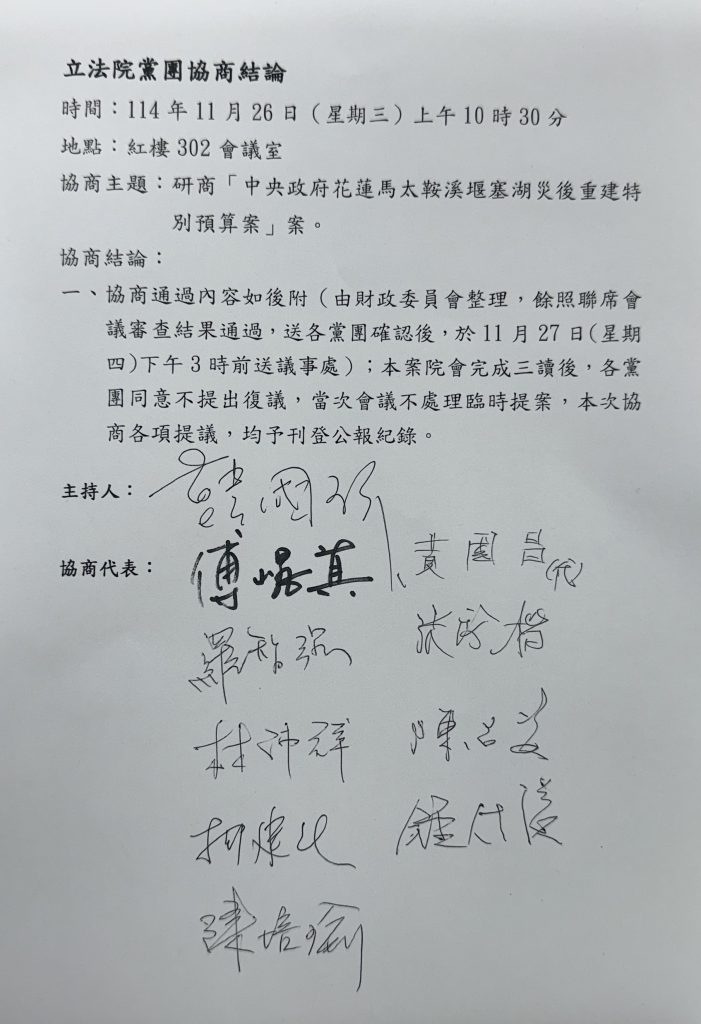 立法院黨團協商結論
時間：114 年 11 月 26 日（星期三）上午 10 時 30 分
地點：紅樓 302 會議室
協商主題：研商「中央政府花蓮馬太鞍溪堰塞湖災後重建特
別預算案」案。
協商結論：
一、協商通過內容如後附（由財政委員會整理，餘照聯席會
議審查結果通過，送各黨團確認後，於 11 月 27 日(星期
四)下午 3 時前送議事處）；本案院會完成三讀後，各黨
團同意不提出復議，當次會議不處理臨時提案，本次協
商各項提議，均予刊登公報紀錄。
主持人：韓國瑜
協商代表：傅崐萁 黃國昌(代)
羅智強
林沛祥 陳
柯建銘 鍾佳濱
陳培瑜